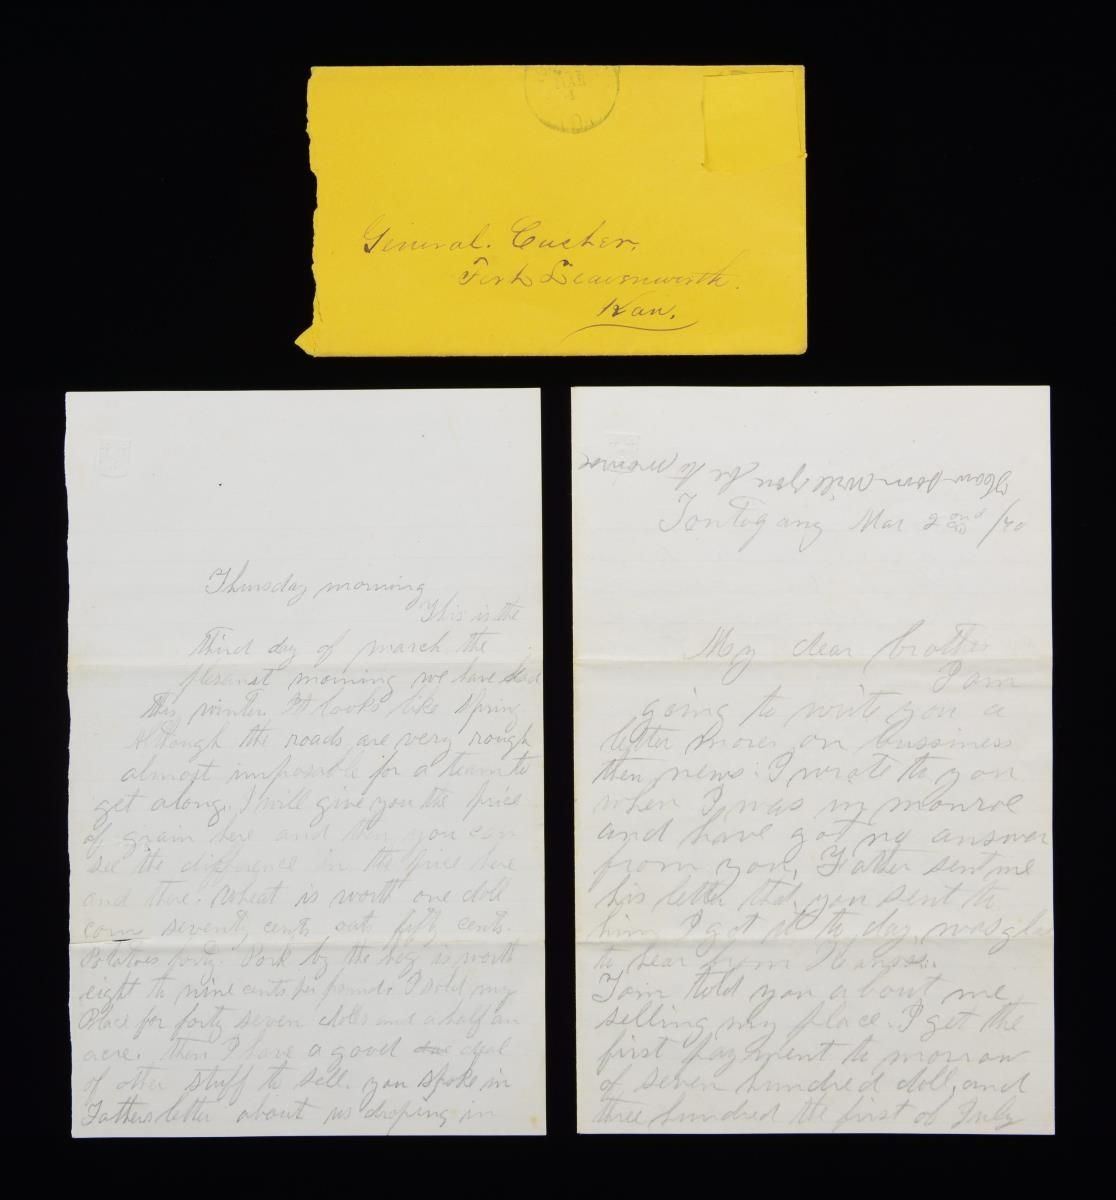 General. Custer,
Fort Leavenworth.
Kan.
Thursday morning
This is the
third day of march the
plesanst morning we have had
this winter. It looks like Spring
Although the roads are very rough
almost imposable for a team to
get along. I will give you the price
of grain here and then you can
see the difference in the price here
and there. Wheat is worth one doll
corn seventy cents oats fifty cents.
Potatoes forty. Pork by the hog is worth
eight to nine cents per pound. I sold my
Place for forty seven dolls and a half an
acre. then I have a good deal
of other stuff to sell. you spoke in
Fathers letter about us droping in
How soon will you be to monroe
Tontogany Mar 2nd /70
My dear brother
I am
going to write you a
letter more on bussiness
then news. I wrote to you
when I was in monroe
and have got no answer
from you. Father sent me
his letter that you sent to
him I got it to day, was glad
to hear from Kansas.
Tom told you about me
selling my place. I get the
first payment to morrow
of seven hundred doll, and
three hundred the first of July